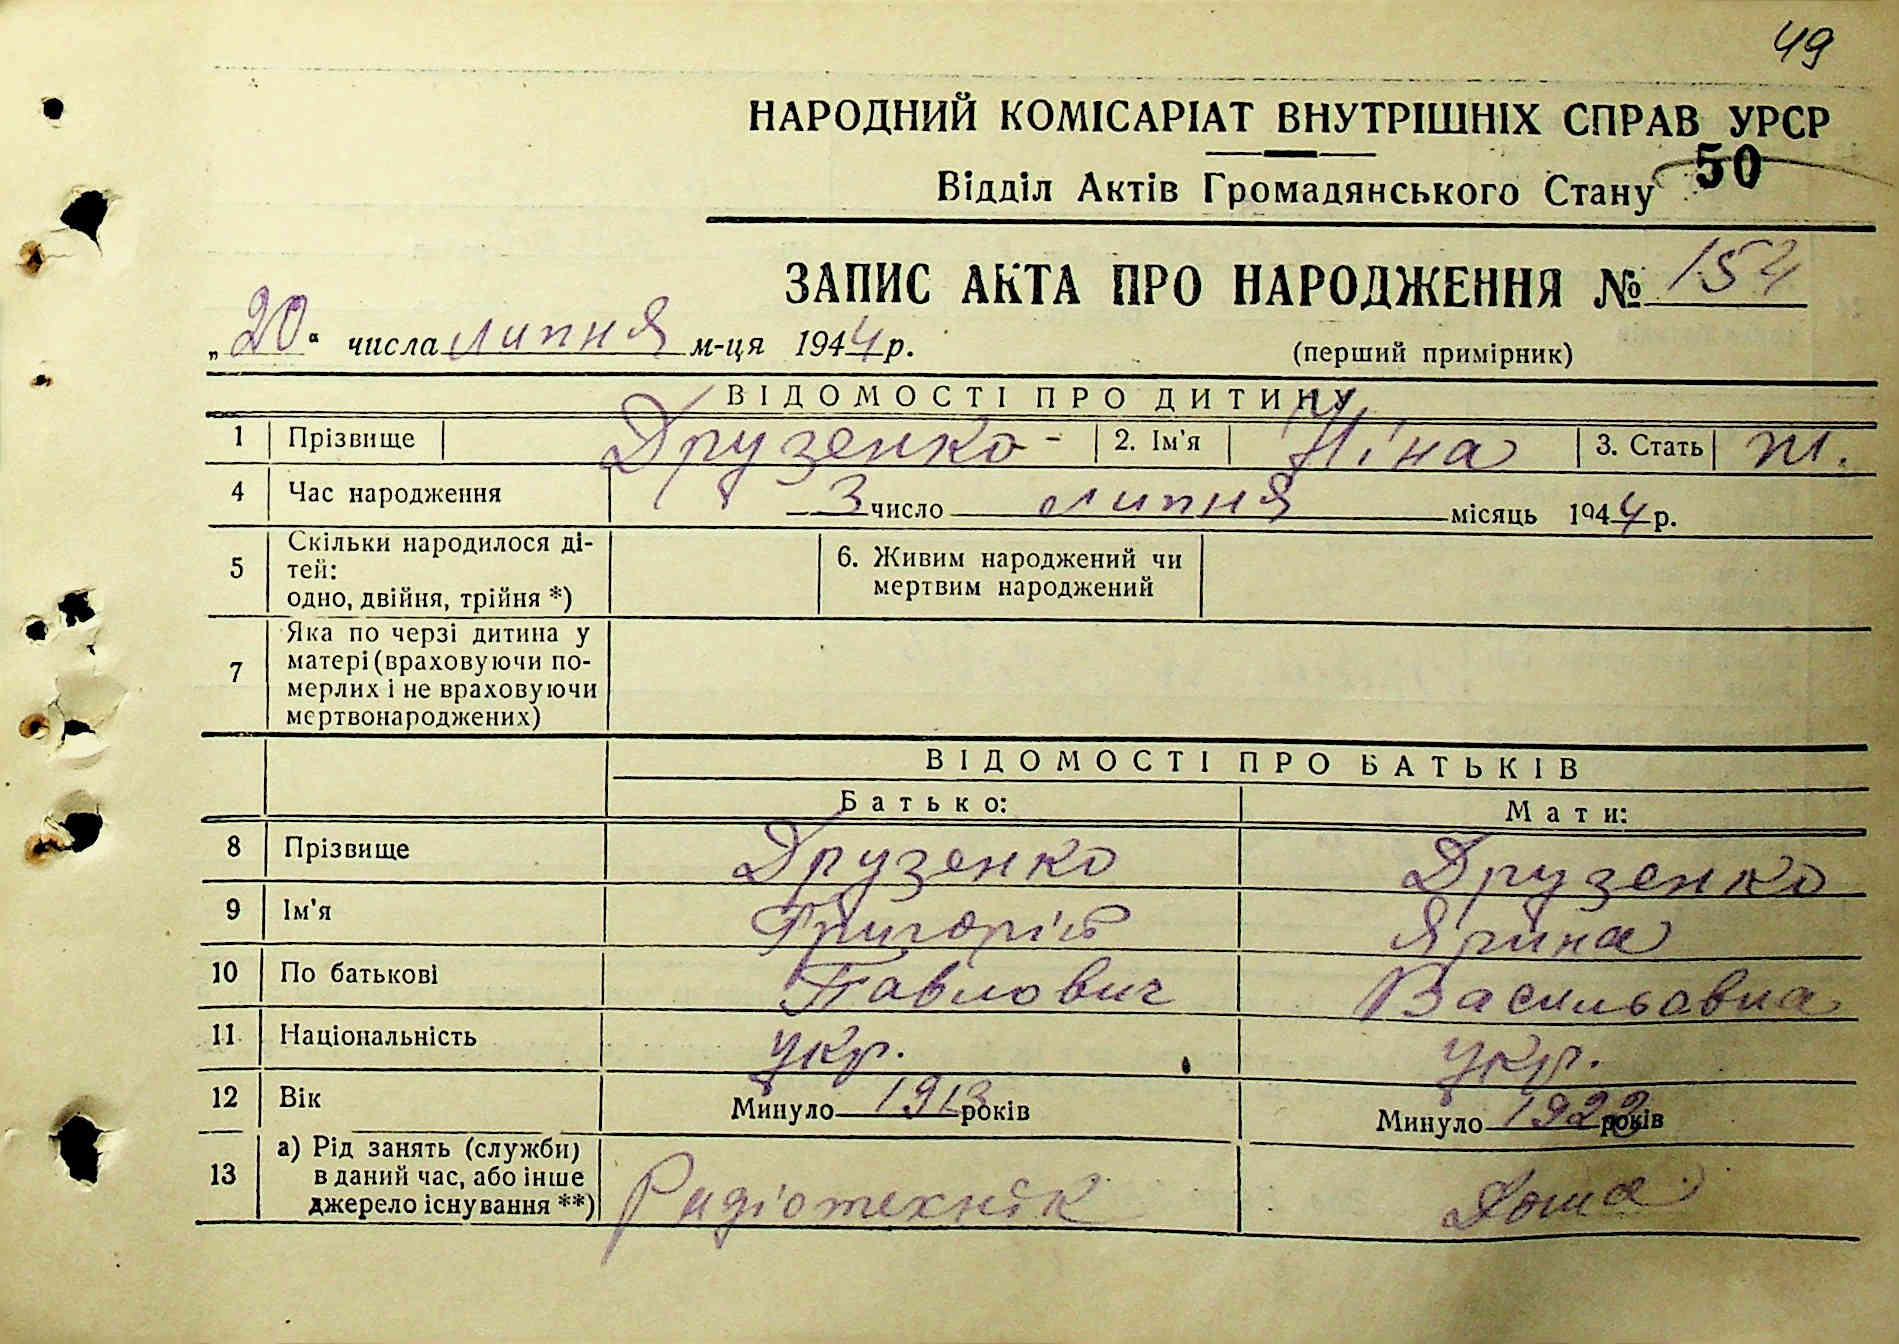 49
НАРОДНИЙ КОМІСАРІАТ ВНУТРІШНІХ СПРАВ УРСР
Відділ Актів Громадянського Стану 50
ЗАПИС АКТА ПРО НАРОДЖЕННЯ № 154
„20“ числа липня м-ця 1944 р. (перший примірник)
ВІДОМОСТІ ПРО ДИТИНУ
1 Прізвище Друзенко - 2. Ім'я Ніна 3. Стать ж.
4 Час народження 3 число липня місяць 1944 р.
5 Скільки народилося ді-
тей:
одно, двійня, трійня *)
6. Живим народжений чи
мертвим народжений
7 Яка по черзі дитина у
матері (враховуючи по-
мерлих і не враховуючи
мертвонароджених)
ВІДОМОСТІ ПРО БАТЬКІВ
Батько: Мати:
8 Прізвище Друзенко Друзенко
9 Ім'я Григорій Ярина
10 По батькові Павлович Васильовна
11 Національність укр. укр.
12 Вік Минуло 1913 років Минуло 1922 років
13 а) Рід занять (служби)
в даний час, або інше
джерело існування **)
Радіотехнік Дома